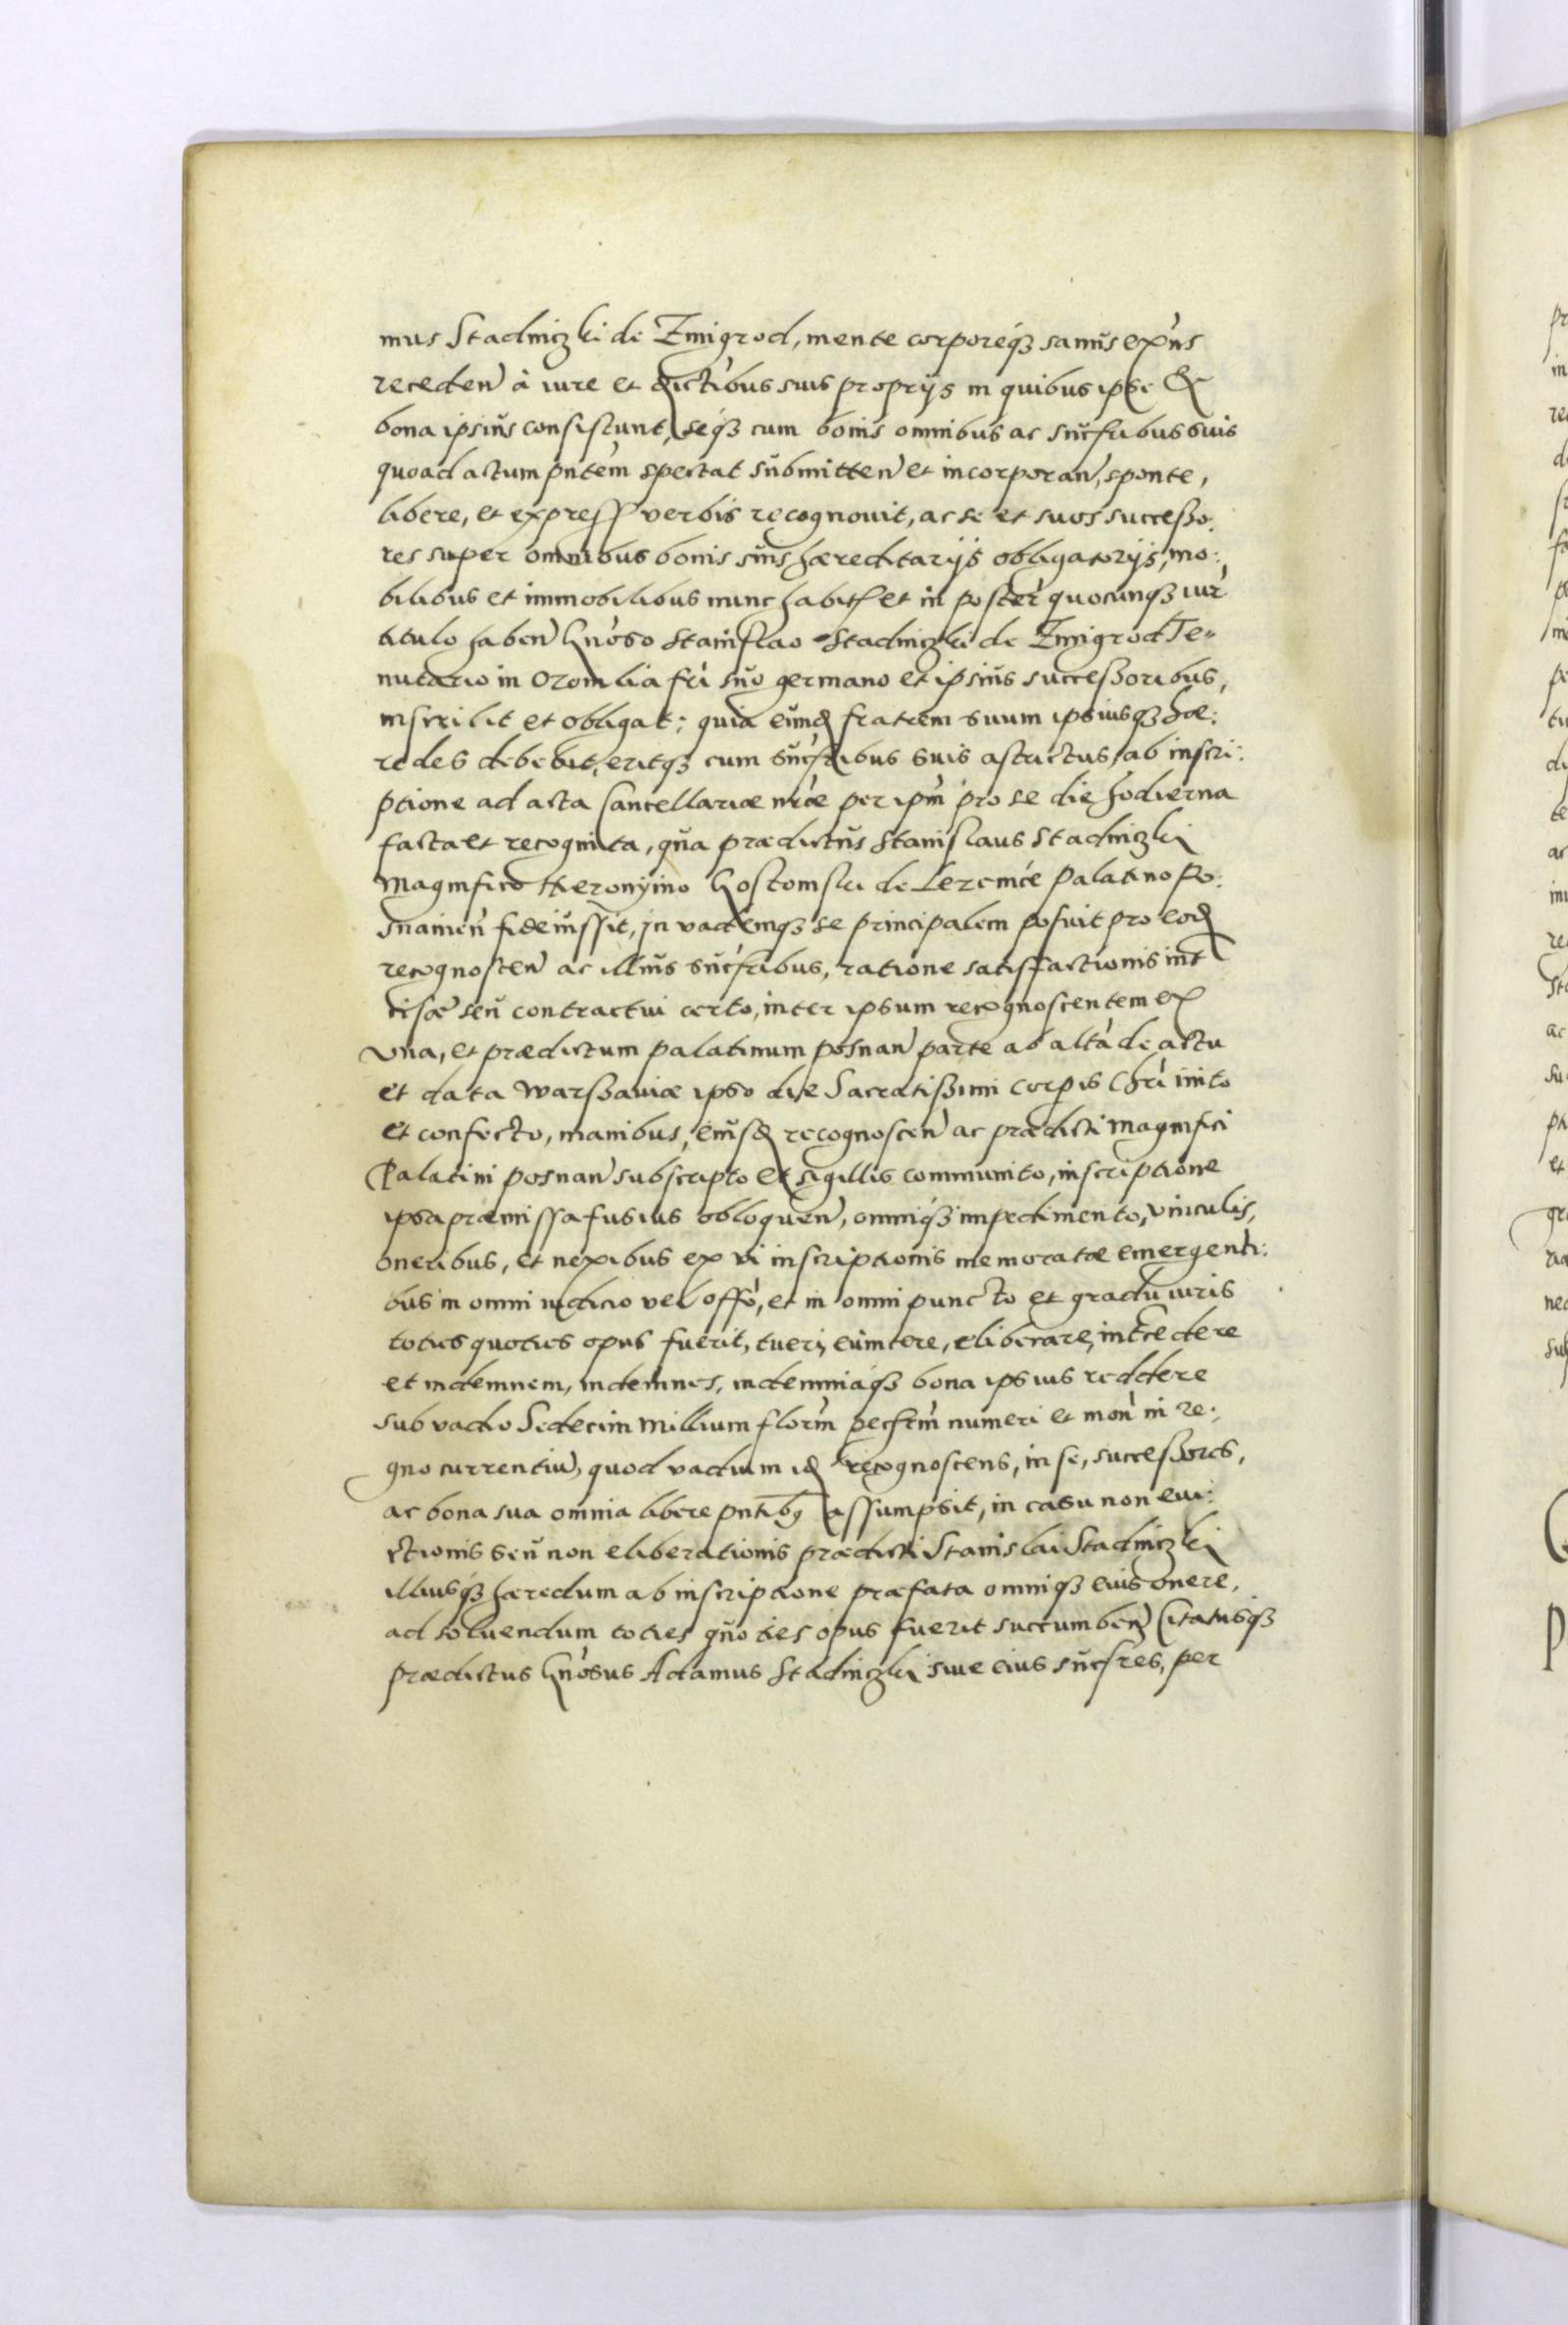 mus Stadniczki de Zmigrod, mente corporeq3 sanus exn̄s
receden̄ à iure et dictībus suis proprijs in quibus ipse &
bona ipsius consistunt, seq3 cum bonis omnibus ac suc̄rībus suis
quoad actum pntēm spectat submitten̄ et incorporan̄, sponte,
libere, et express verbis recognouit, ac se et suos successo:
res super omnibus bonis suis hæreditarijs obligatorijs, mo:
bilibus et immobilibus nunc habit et in poster̄ quocunq3 iur̄
titulo haben̄ Gn̄oso Stanislao Stadniczki de Zmigrod Te"
nutario in Ozomlia frī suo germano et ipsius successoribus,
inscribit et obligat: quia eund fratrem suum ipsiusq3 hæ:
redes debebit, eritq3 cum suc̄rībus suis astrictus, ab inscri:
ptione ad acta Cancellariæ nræ per ipm̄ pro se die hodierna
facta et recognita, qua prædictus Stanislaus Stadniczki
Magnifico Hieronymo Gostomski de Lezenice Palatino Po:
snanien̄ fideiussit, in vademq3 se principalem posuit pro eod
recognoscen̄ ac illius suc̄rībus, ratione satisfactionis int
cisæ seu contractui certo, inter ipsum recognoscentem ex
vna, et prædictum palatinum posnan̄ parte ab altā de actu
et data Warssauiæ ipso die Sacratissimi Corpis Chrī inito
et confecto, manibus, eiusd recognoscen̄ ac prædicti Magnifici
Palatini posnan̄ subscripto et sigillis communito, inscriptione
ipsa præmissa fusius obloquen̄, omniq3 impedimento, vinculis,
oneribus, et nexibus ex vi inscriptionis memoratæ emergenti:
bus in omni iudicio vel offō, et in omni puncto et gradu iuris
toties quoties opus fuerit, tueri, euincere, eliberare, intcedere
et indemnem, indemnes, indemniaq3 bona ipsius reddere
sub vadio Sedecim Millium florm̄ pecn̄m̄ numeri et mon̄ in re:
gno currentiu, quod vadium id recognoscens, in se, successores,
ac bona sua omnia libere pntib9 assumpsit, in casu non eui:
ctionis seu non eliberationis prædicti Stanislai Stadniczki
illiusq3 hæredum ab inscriptione præfata omniq3 eius onere,
ad soluendum toties quoties opus fuerit succumben̄ Citatusq3
prædictus Gn̄osus Adamus Stadniczki siue eius suc̄res, per